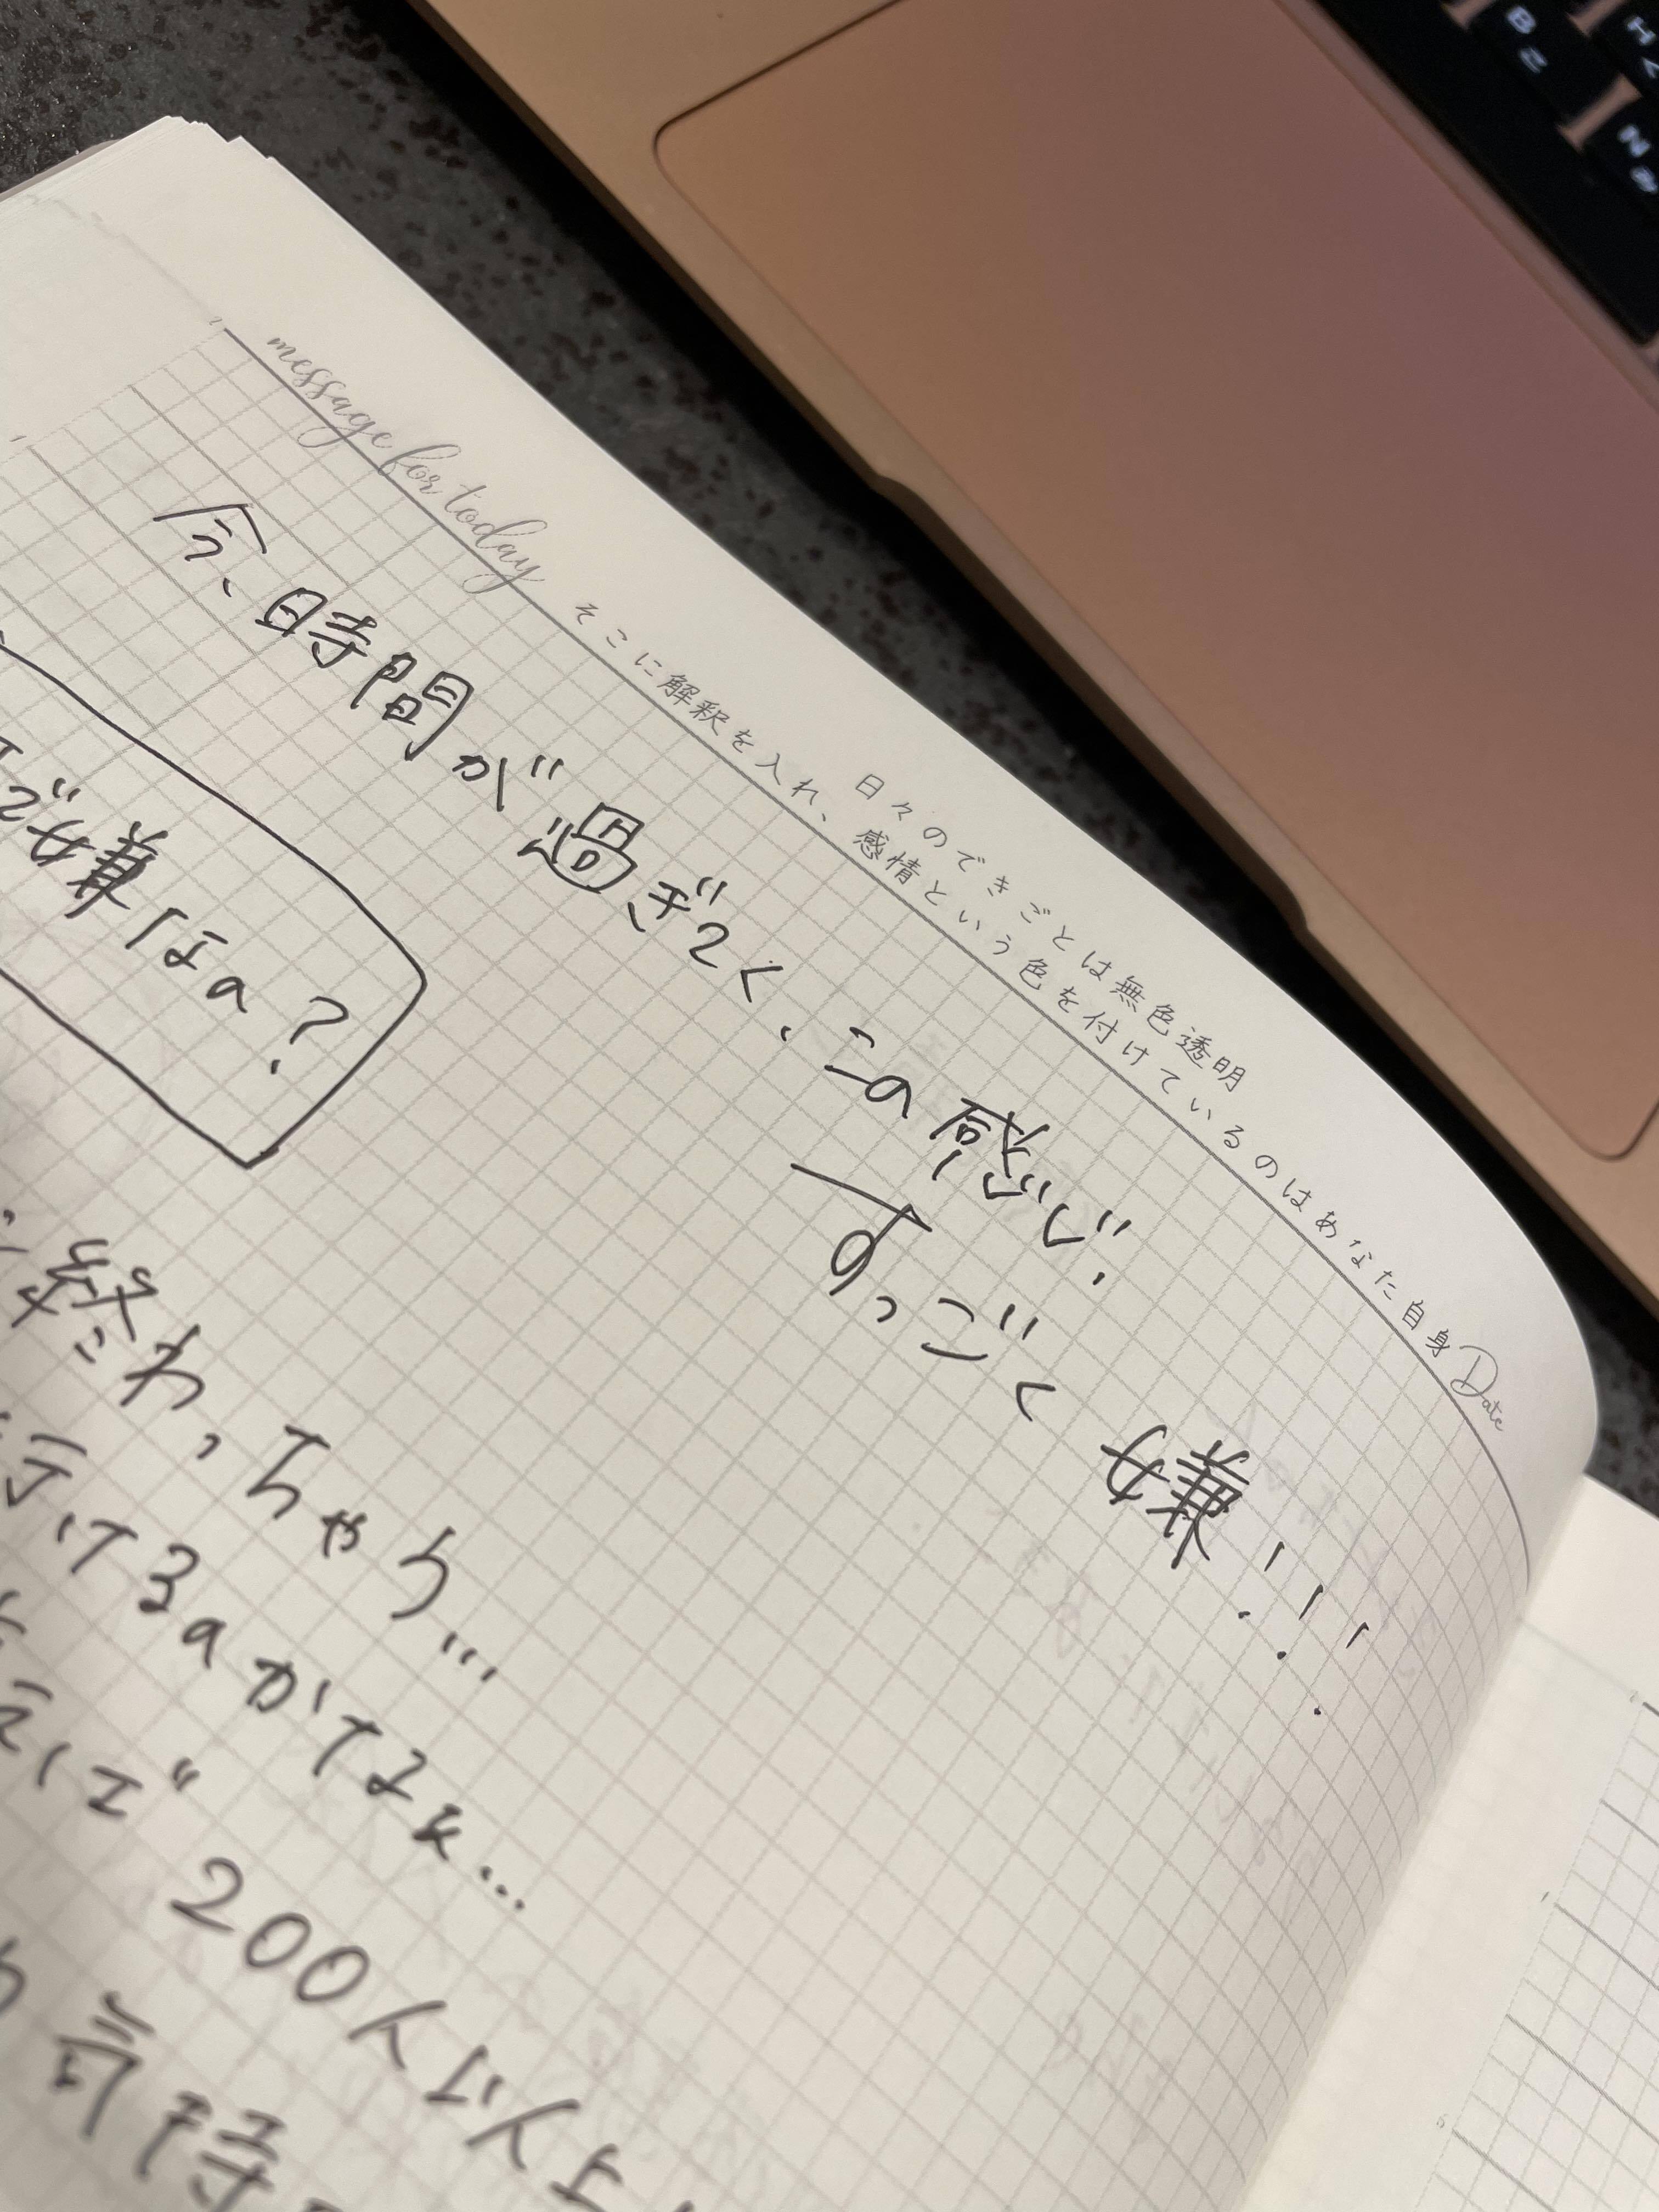 message for today
日々のできごとは無色透明
そこに解釈を入れ、感情という色を付けているのはあなた自身
Date
今、時間が過ぎてく、この感じ、
すっごく嫌!!!
で嫌なの?
終わっちゃう…
行けるのかなぁ…
言えば 200人以上
気持
B
こ
H
く
N
み